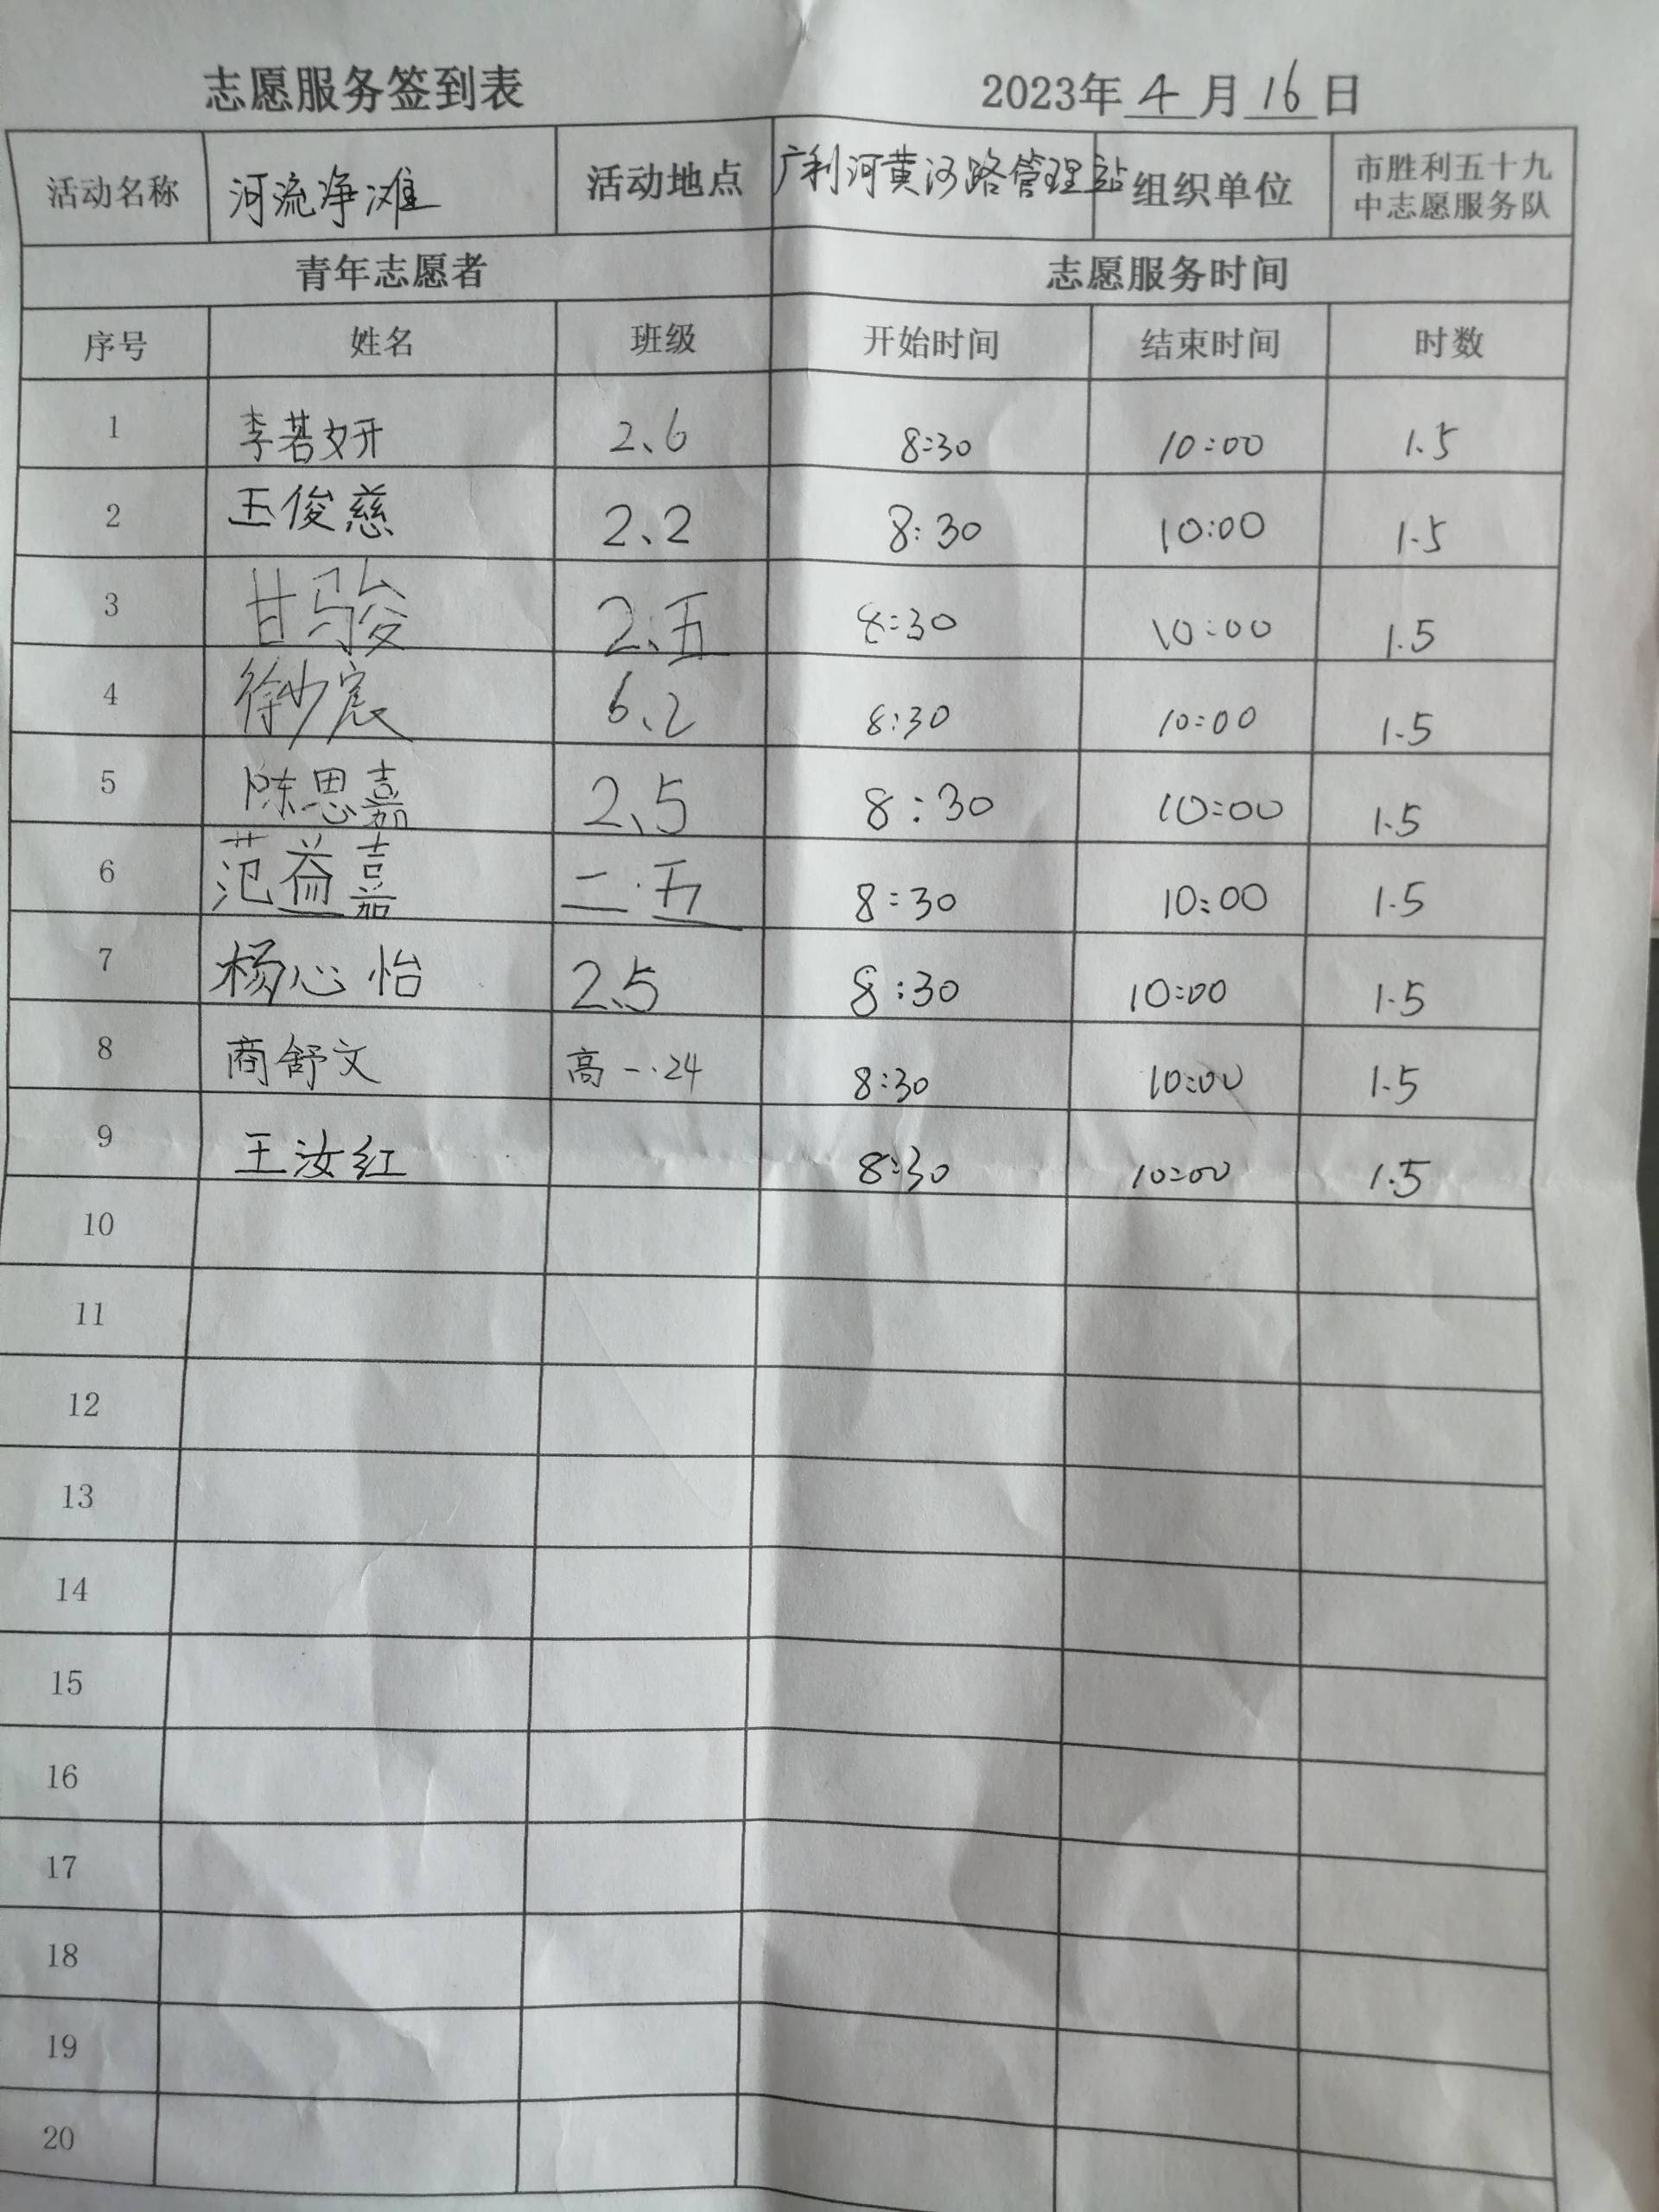 志愿服务签到表 2023年4月16日
活动名称 河流净滩 活动地点 广利河黄河路管理站 组织单位 市胜利五十九中志愿服务队
青年志愿者 志愿服务时间
序号 姓名 班级 开始时间 结束时间 时数
1 李若妍 2、6 8:30 10:00 1.5
2 王俊慈 2、2 8:30 10:00 1.5
3 甘骏 2、五 8:30 10:00 1.5
4 徐少宸 6、2 8:30 10:00 1.5
5 陈思嘉 2、5 8:30 10:00 1.5
6 范益嘉 二·五 8:30 10:00 1.5
7 杨心怡 2、5 8:30 10:00 1.5
8 商舒文 高一·24 8:30 10:00 1.5
9 王汝红 8:30 10:00 1.5
10
11
12
13
14
15
16
17
18
19
20